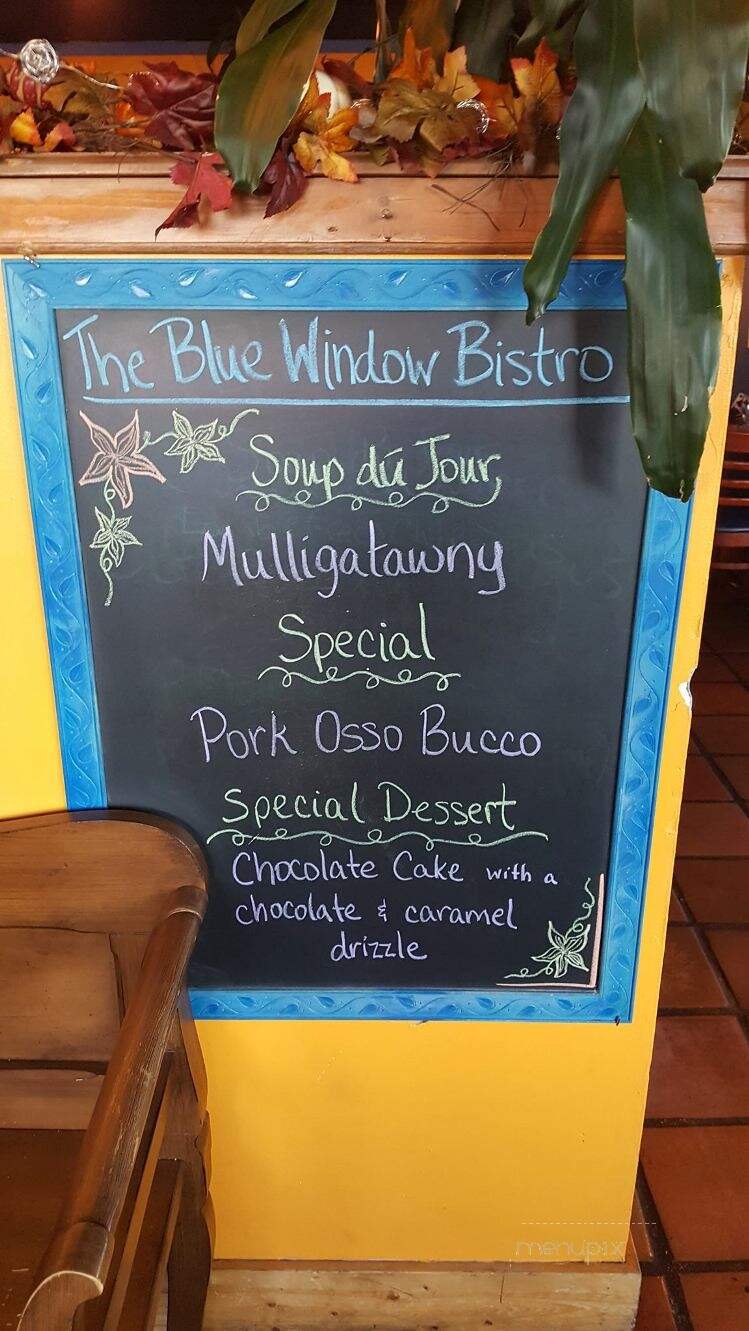 The Blue Window Bistro
Soup dú Jour
Mulligatawny
Special
Pork Osso Bucco
Special Dessert
Chocolate Cake with a
chocolate & caramel
drizzle
menupix